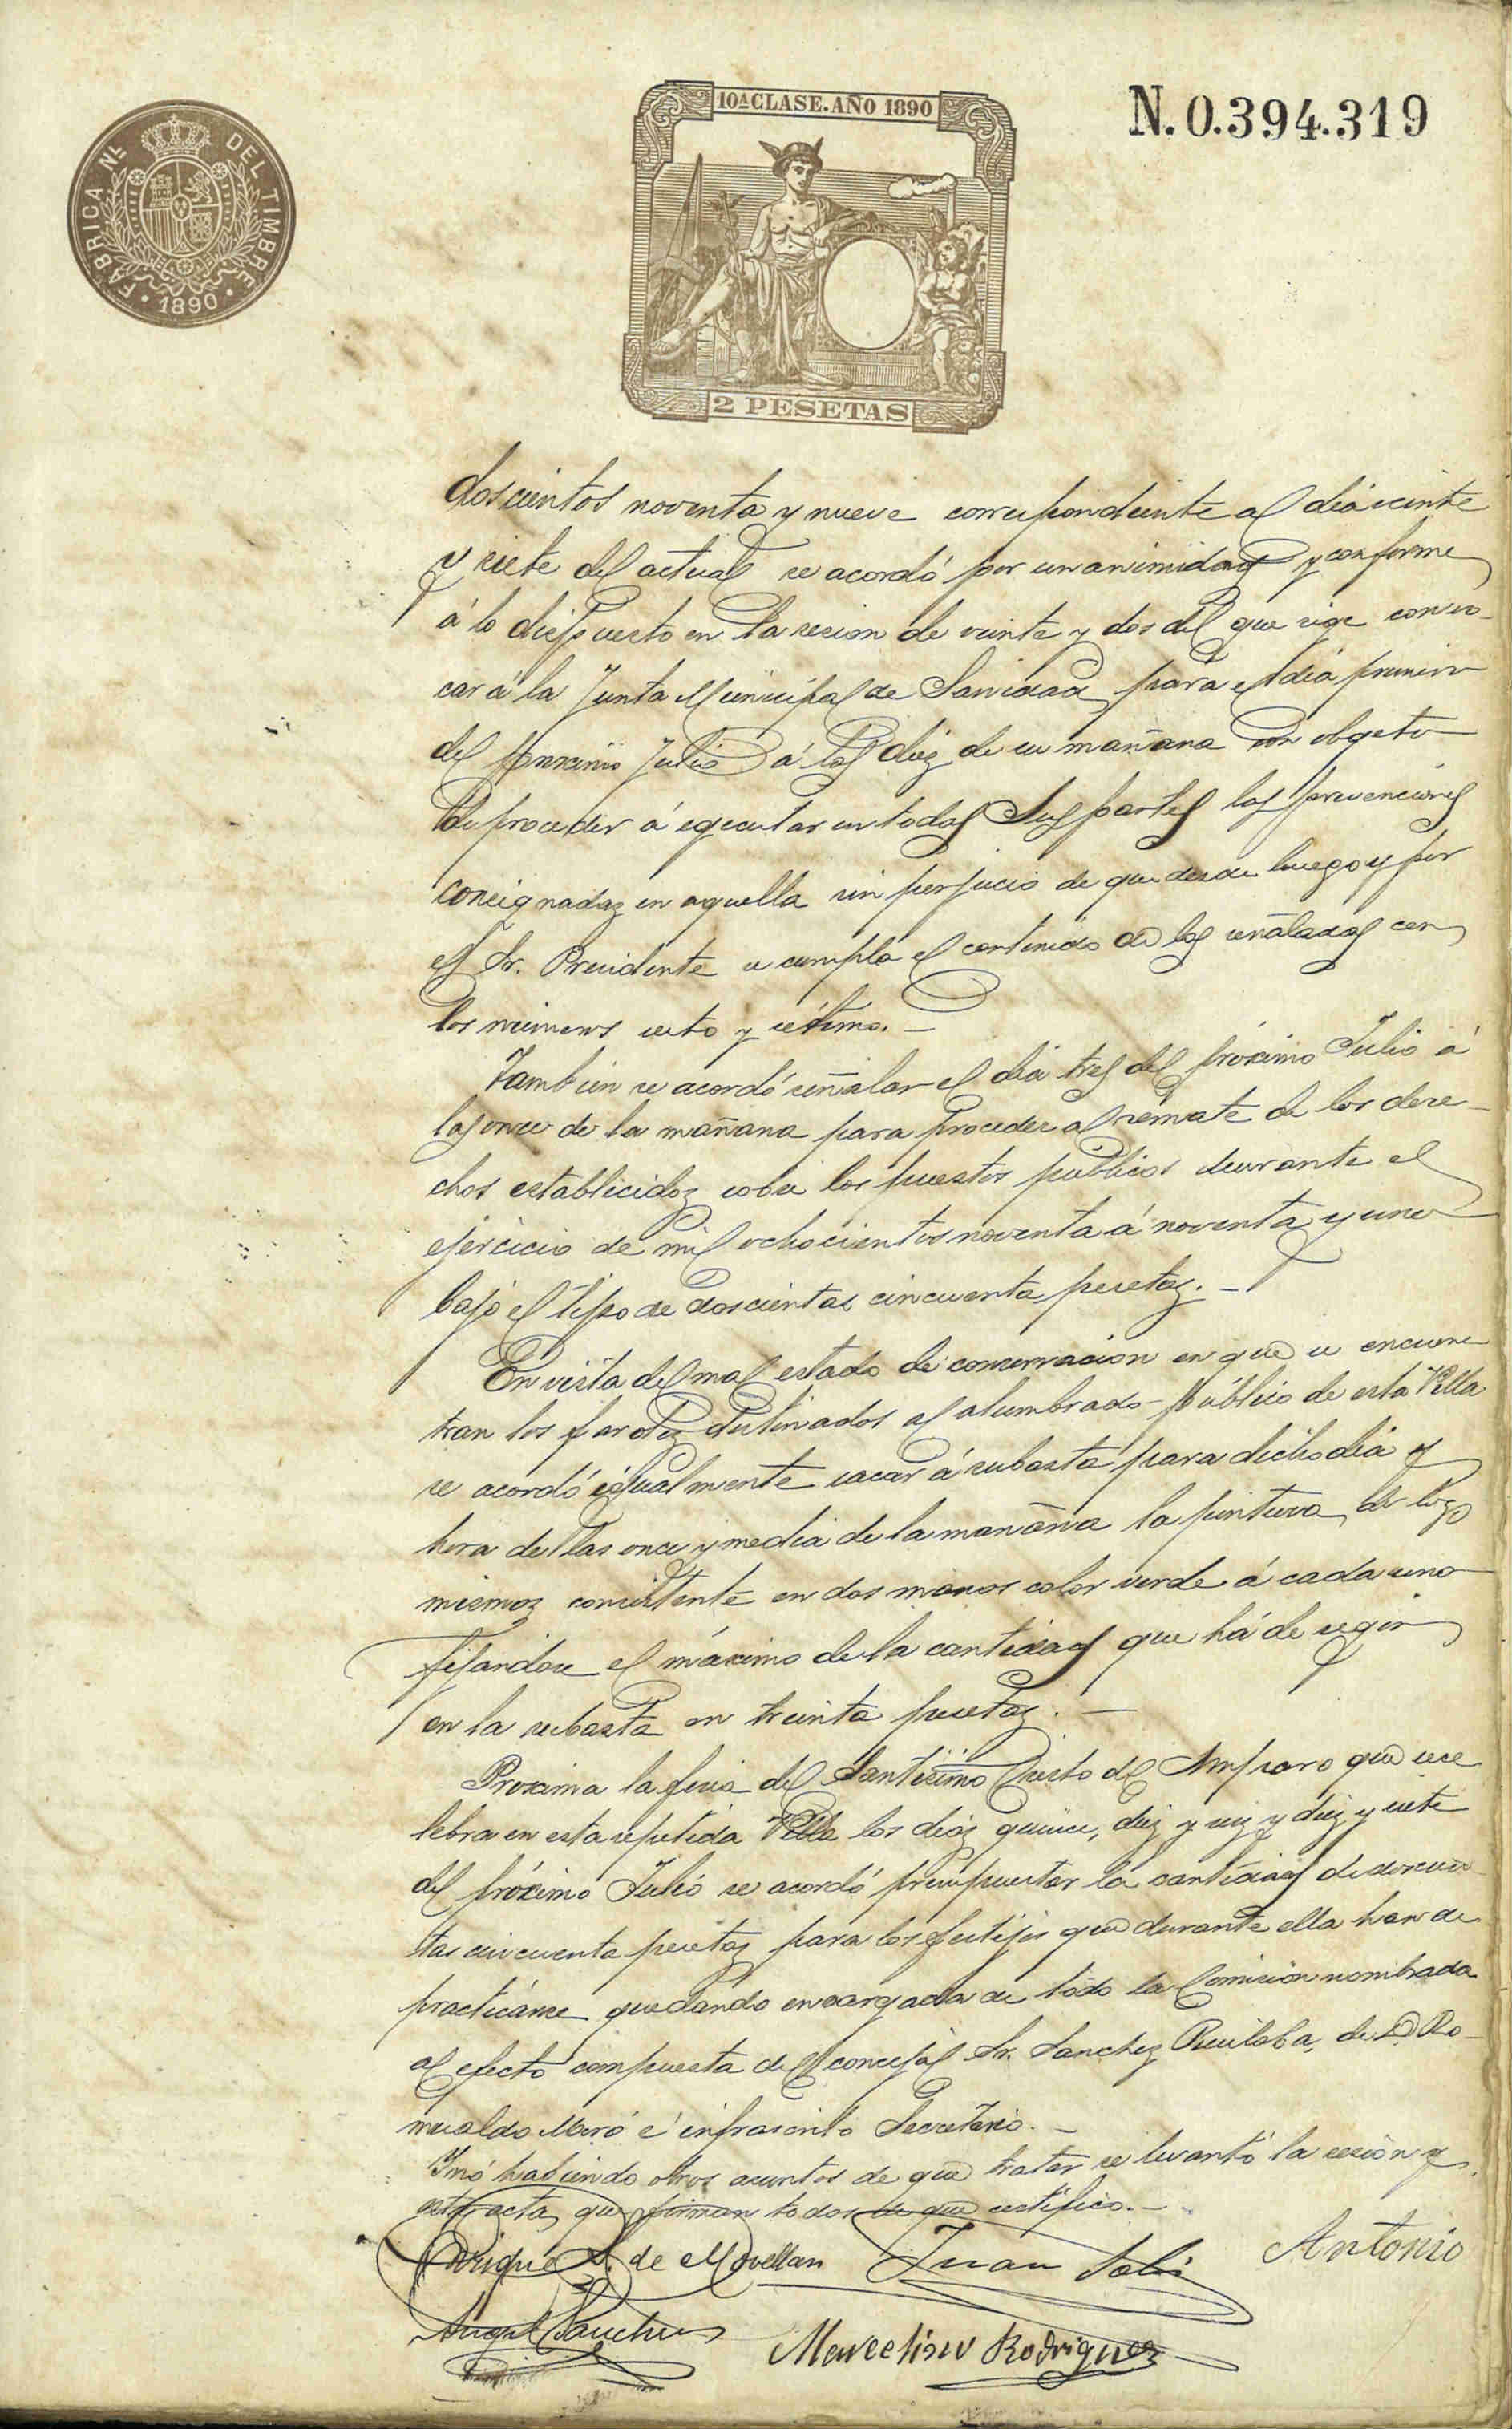 FABRICA NL. DEL TIMBRE
· 1890 ·
10A CLASE. AÑO 1890
2 PESETAS
N. 0.394.319
doscientos noventa y nueve correspondiente al dia veinte
y siete del actual se acordó por unanimidad y conforme
á lo dispuesto en la sesion de veinte y dos del que rige convo-
car á la Junta Municipal de Sanidad para el dia primero
del proximo Julio á las diez de su mañana con objeto
de proceder á egecutar en todas sus partes las prevenciones
consignadas en aquella sin perjucio de que desde luego y por
el Sr. Presidente se cumpla el contenido de las señaladas con
los numeros sesto y sétimo. —
Tambien se acordó señalar el dia tres del próximo Julio á
las once de la mañana para proceder al remate de los dere-
chos establicidoz sobre los puestos publicos durante el
ejercicio de mil ochocientos noventa á noventa y uno
bajo el tipo de doscientas cincuenta pesetas. —
En vista del mal estado de conservacion en que se encuen-
tran los faroles destinados al alumbrado público de esta Villa
se acordó igualmente sacar á subasta para dicho dia y
hora de las once y media de la mañana la pintura de los
mismoz consistente en dos manos color verde á cada uno
fijandose el máximo de la cantidad que há de regir
en la subasta en treinta pesetas. —
Proxima la feria del Santisimo Cristo del Amparo que se ce
lebra en esta repetida Villa los dias quince, diez y seis y diez y siete
del próximo Julio se acordó presupuestar la cantidad de doscien
tas cincuenta pesetas para los festejos que durante ella han de
practicarse quedando encargada de todo la Comision nombrada
al efecto compuesta del concejal Sr. Sanchez Ruiloba, de D. Ro-
mualdo Moró é infrascrito Secretario. —
Y nó habiendo otros asuntos de que tratar se levantó la sesion y
esta acta, que firman todos de que certifico. —
Enrique S. de Movellan Juan Solis Antonio
Angel Sanchez
Marcelino Rodriguez